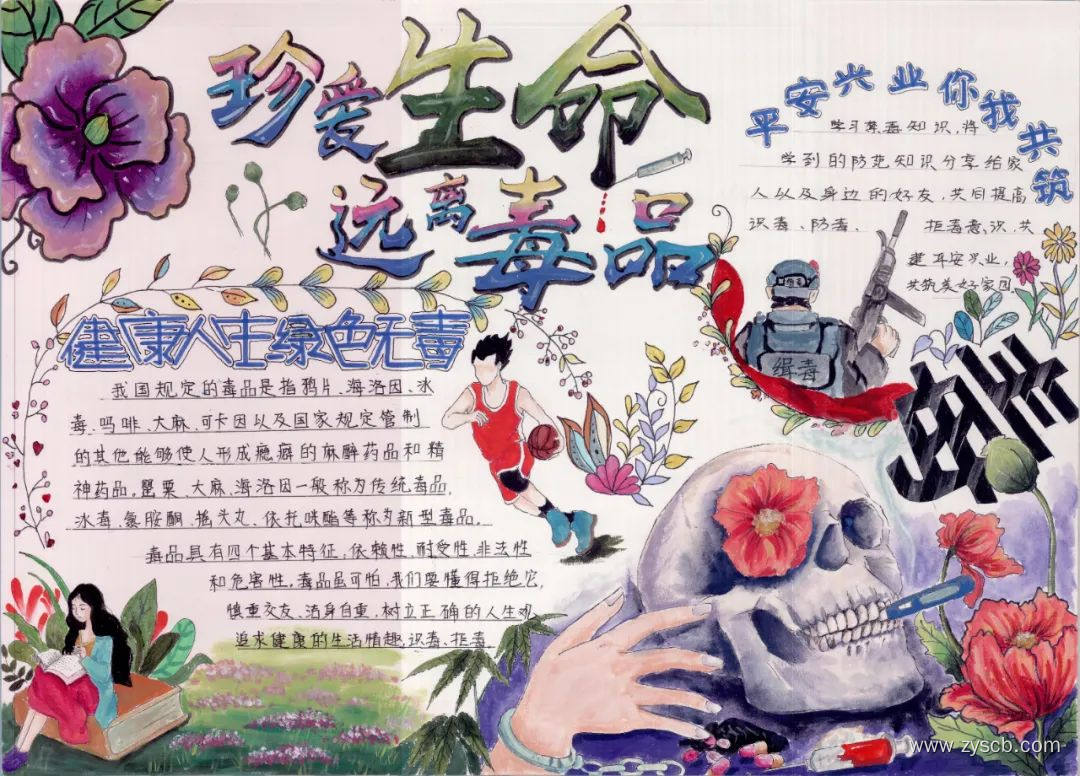 珍爱生命
远离毒品
平安兴业你我共筑
学习禁毒知识,将
学到的防范知识分享给家
人以及身边的好友,共同提高
识毒、防毒、拒毒意识,共
建平安兴业,
共筑美好家园
缉毒
健康人生绿色无毒
我国规定的毒品是指鸦片、海洛因、冰
毒、吗啡、大麻、可卡因以及国家规定管制
的其他能够使人形成瘾癖的麻醉药品和精
神药品,罂粟、大麻、海洛因一般称为传统毒品,
冰毒、氯胺酮、摇头丸、依托咪酯等称为新型毒品。
毒品具有四个基本特征,依赖性、耐受性、非法性
和危害性。毒品虽可怕,我们要懂得拒绝它,
慎重交友、洁身自重,树立正确的人生观,
追求健康的生活情趣,识毒、拒毒
www.zyscb.com